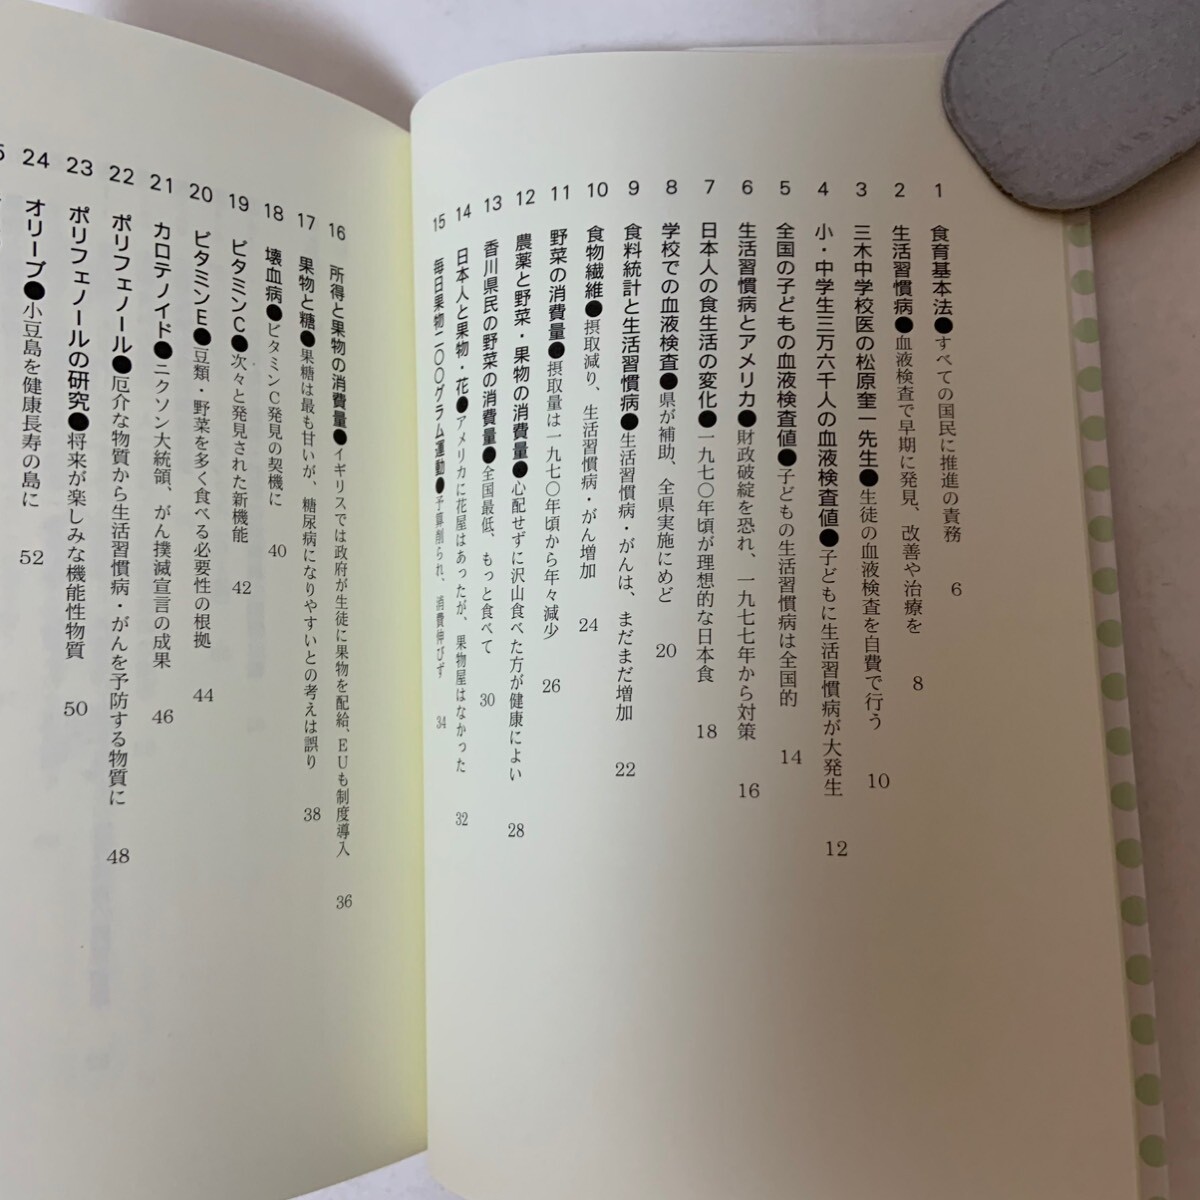 1 食育基本法●すべての国民に推進の責務 6
2 生活習慣病●血液検査で早期に発見、改善や治療を 8
3 三木中学校医の松原奎一先生●生徒の血液検査を自費で行う 10
4 小・中学生三万六千人の血液検査値●子どもに生活習慣病が大発生 12
5 全国の子どもの血液検査値●子どもの生活習慣病は全国的 14
6 生活習慣病とアメリカ●財政破綻を恐れ、一九七七年から対策 16
7 日本人の食生活の変化●一九七〇年頃が理想的な日本食 18
8 学校での血液検査●県が補助、全県実施にめど 20
9 食料統計と生活習慣病●生活習慣病・がんは、まだまだ増加 22
10 食物繊維●摂取減り、生活習慣病・がん増加 24
11 野菜の消費量●摂取量は一九七〇年頃から年々減少 26
12 農薬と野菜・果物の消費量●心配せずに沢山食べた方が健康によい 28
13 香川県民の野菜の消費量●全国最低、もっと食べて 30
14 日本人と果物・花●アメリカに花屋はあったが、果物屋はなかった 32
15 毎日果物二〇〇グラム運動●予算削られ、消費伸びず 34
16 所得と果物の消費量●イギリスでは政府が生徒に果物を配給、EUも制度導入 36
17 果物と糖●果糖は最も甘いが、糖尿病になりやすいとの考えは誤り 38
18 壊血病●ビタミンC発見の契機に 40
19 ビタミンC●次々と発見された新機能 42
20 ビタミンE●豆類・野菜を多く食べる必要性の根拠 44
21 カロテノイド●ニクソン大統領、がん撲滅宣言の成果 46
22 ポリフェノール●厄介な物質から生活習慣病・がんを予防する物質に 48
23 ポリフェノールの研究●将来が楽しみな機能性物質 50
24 オリーブ●小豆島を健康長寿の島に 52